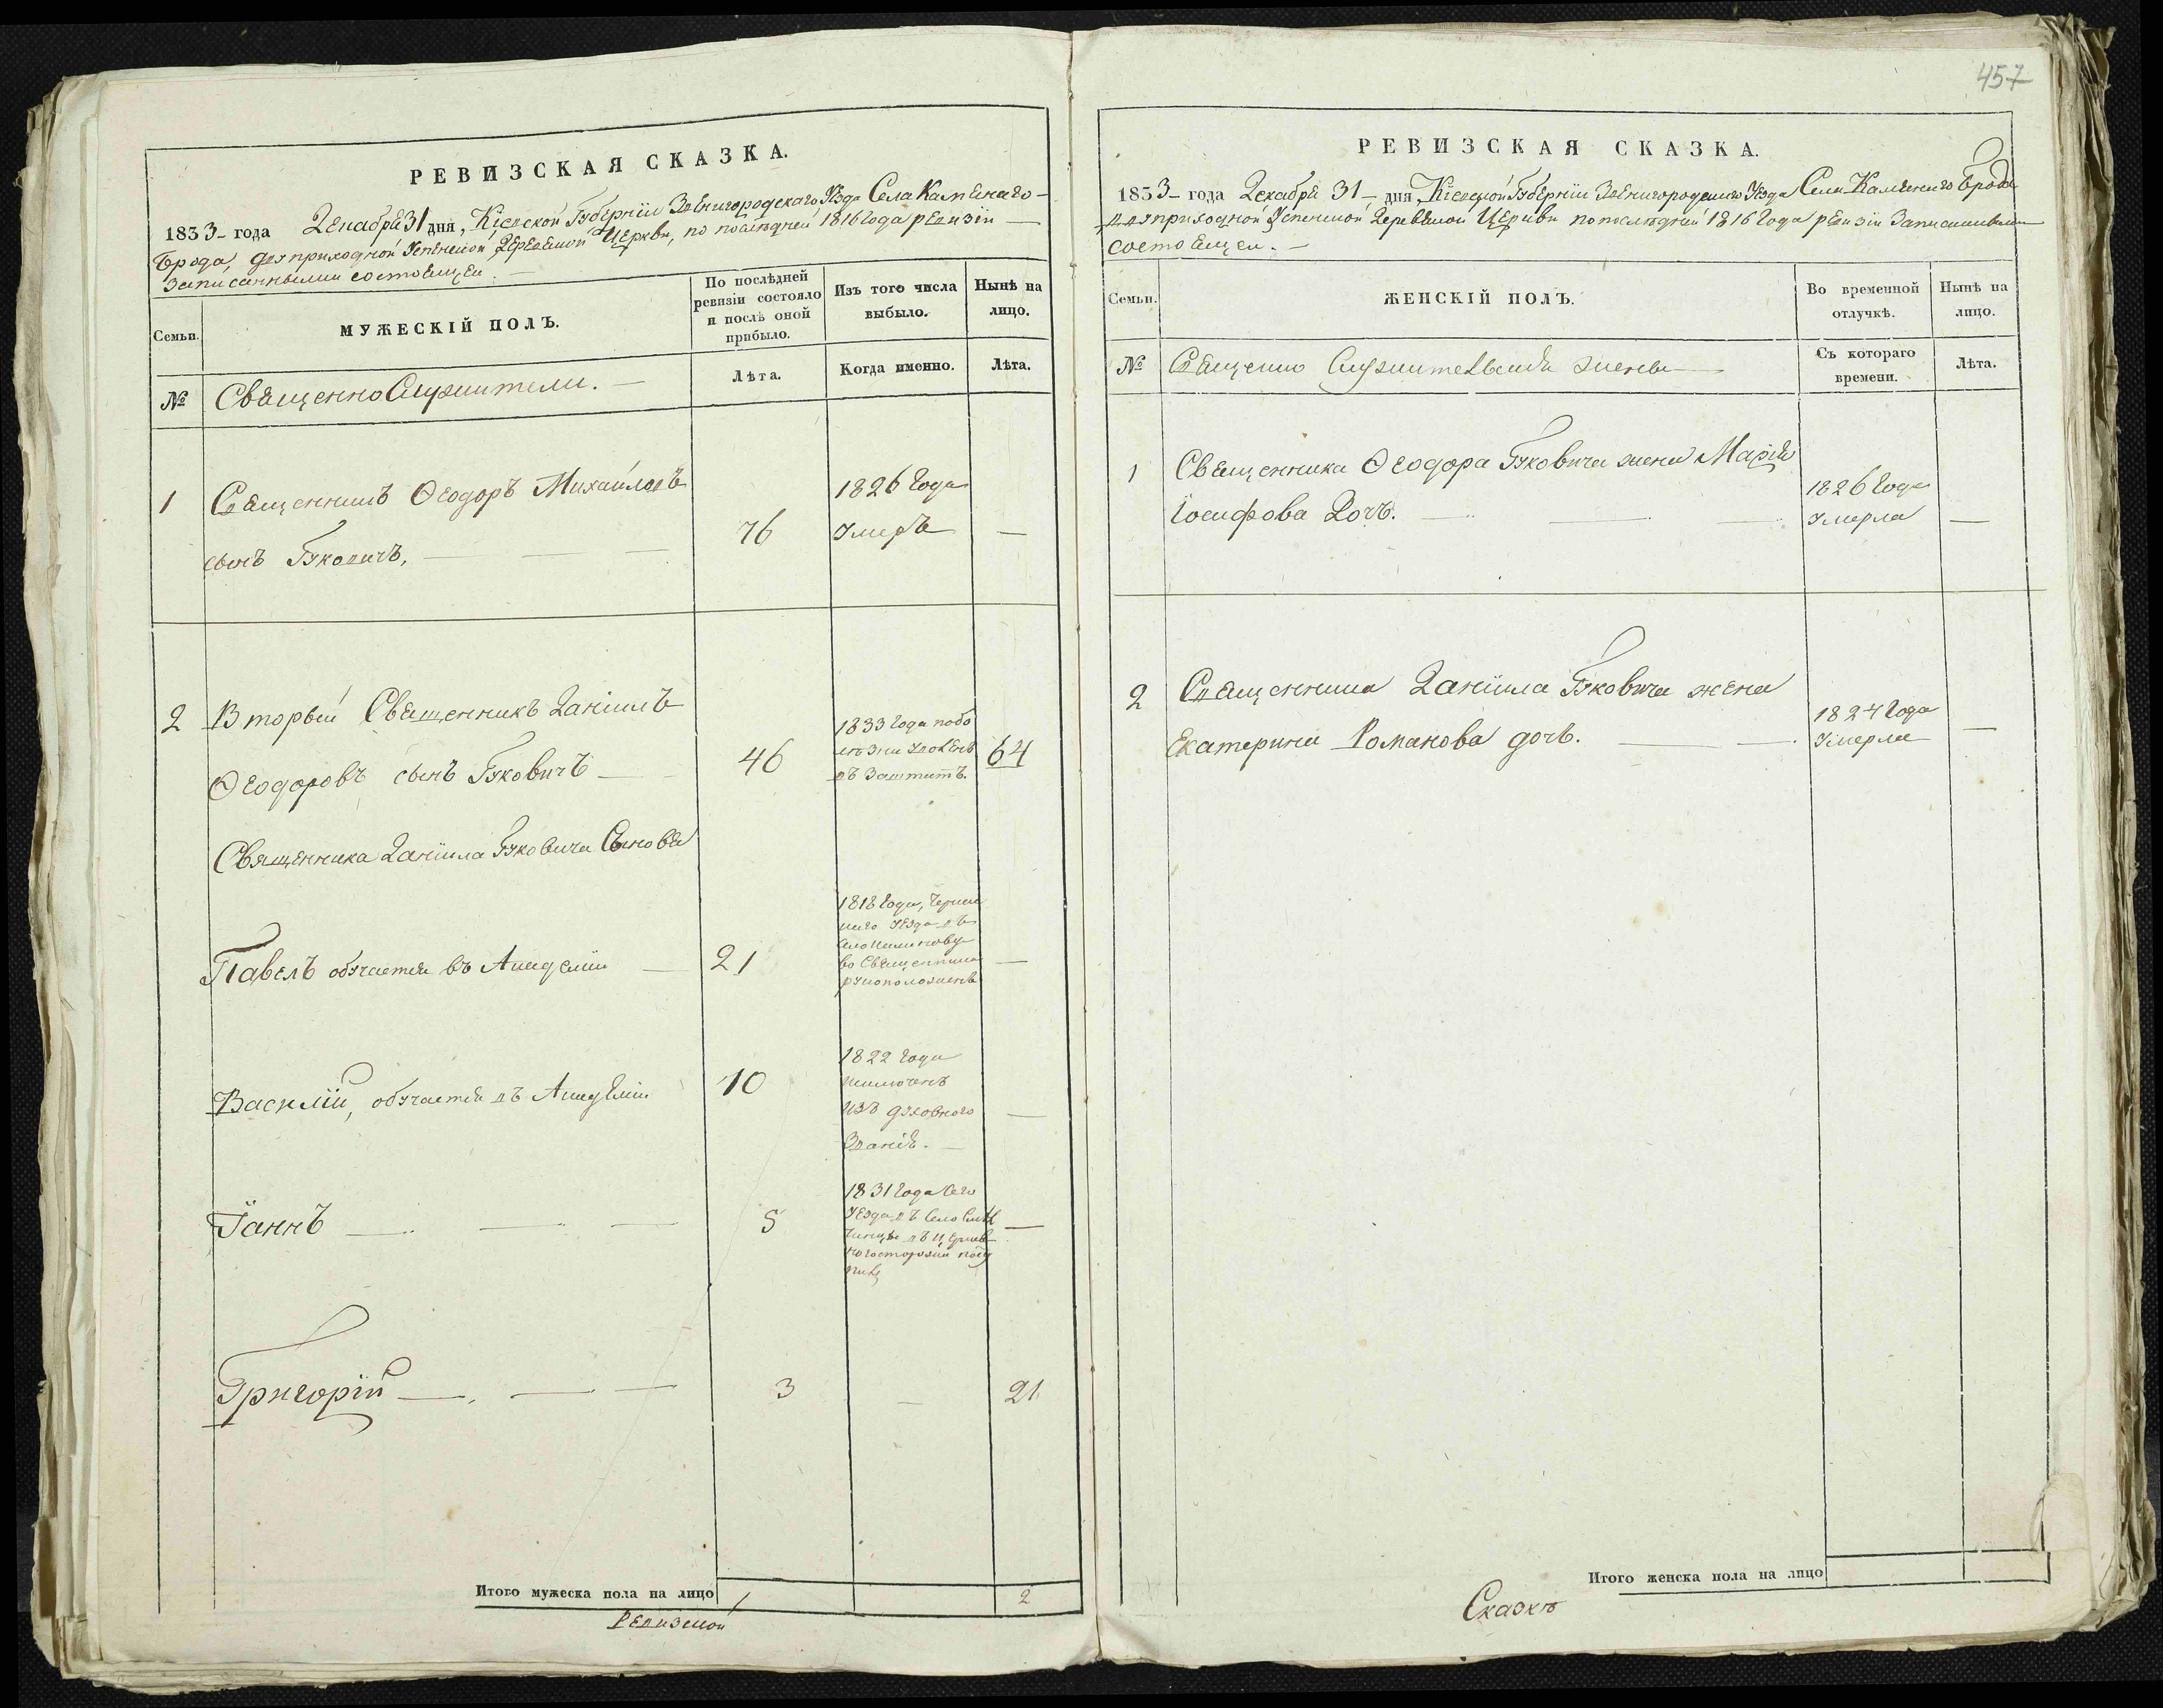 457
РЕВИЗСКАЯ СКАЗКА.
1833 года Декабря 31 дня, Кіевской Губерніи Звенигородскаго Уѣзда Села Каменаго
Брода, двуприходной Успенской деревяной Церкви, по последней 1816 года ревизіи
Записанными состоящеи.
Семьи.
МУЖЕСКІЙ ПОЛЪ.
По послѣдней
ревизіи состояло
и послѣ оной
прибыло.
Изъ того числа
выбыло.
Нынѣ на
лицо.
№
Священно Служители.
Лѣта.
Когда именно.
Лѣта.
1
Священникъ Ѳеодоръ Михайловъ
сынъ Гуковичъ,
76
1826 Года
Умеръ
2
Вторый Священникъ Даніилъ
Ѳеодоровъ сынъ Гуковичъ
46
1833 Года побо
лѣзни уволенъ
въ Заштатъ.
64
Священника Даніила Гуковича Сыновя
Павелъ обучается въ Академіи
21
1818 Года,
Уѣзда въ
Село
во Священника
рукоположенъ
Василій, обучается въ Академіи
10
1822 Года
изъ духовного
Званія.
Іаннъ
5
1831 Года Сего
Уѣзда въ Село
Григорій
3
21
Итого мужеска пола на лицо
1
2
Ревизской
РЕВИЗСКАЯ СКАЗКА.
1833 года Декабря 31 дня, Кіевской Губерніи Звенигородскаго Уѣзда Села Каменаго Брода
двуприходной Успенской Деревяной Церкви по последней 1816 Года ревзіи Записанными
состоящеи.
Семьи.
ЖЕНСКІЙ ПОЛЪ.
Во временной
отлучкѣ.
Нынѣ на
лицо.
№
Священно Служительскія жены
Съ котораго
времени.
Лѣта.
1
Священника Ѳеодора Гуковича жена Марія
Іосифова Дочъ.
1826 Года
Умерла
2
Священника Даніила Гуковича жена
Екатерина Романова дочъ.
1824 Года
Умерла
Итого женска пола на лицо
Сказкѣ